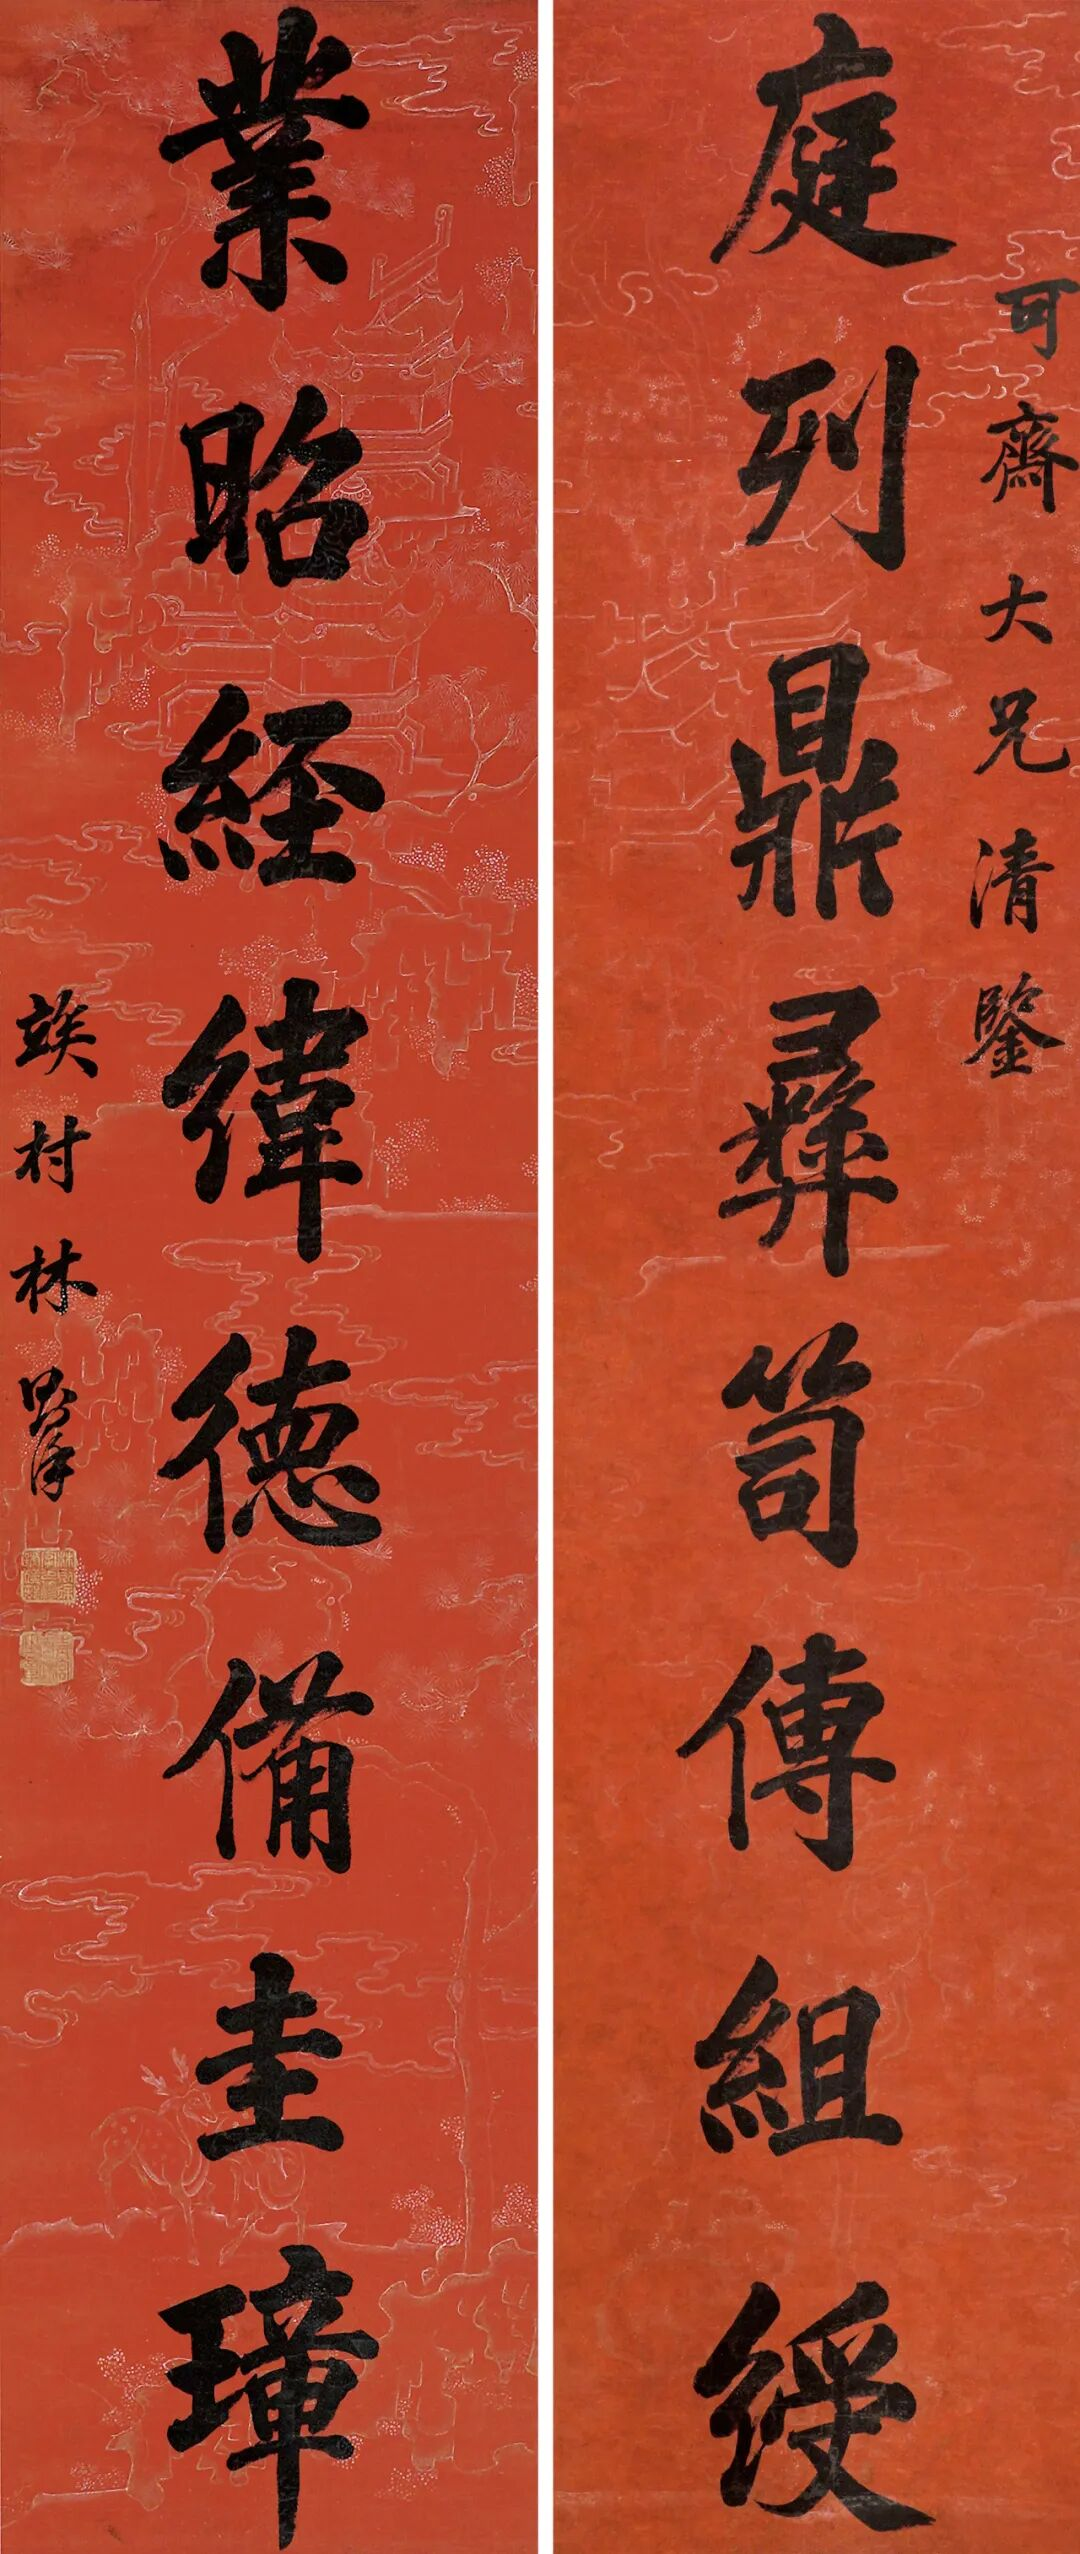 可齋大兄清鑒
庭列鼎彝笥傳組綬
業昭經緯德備圭璋
竢村林則徐